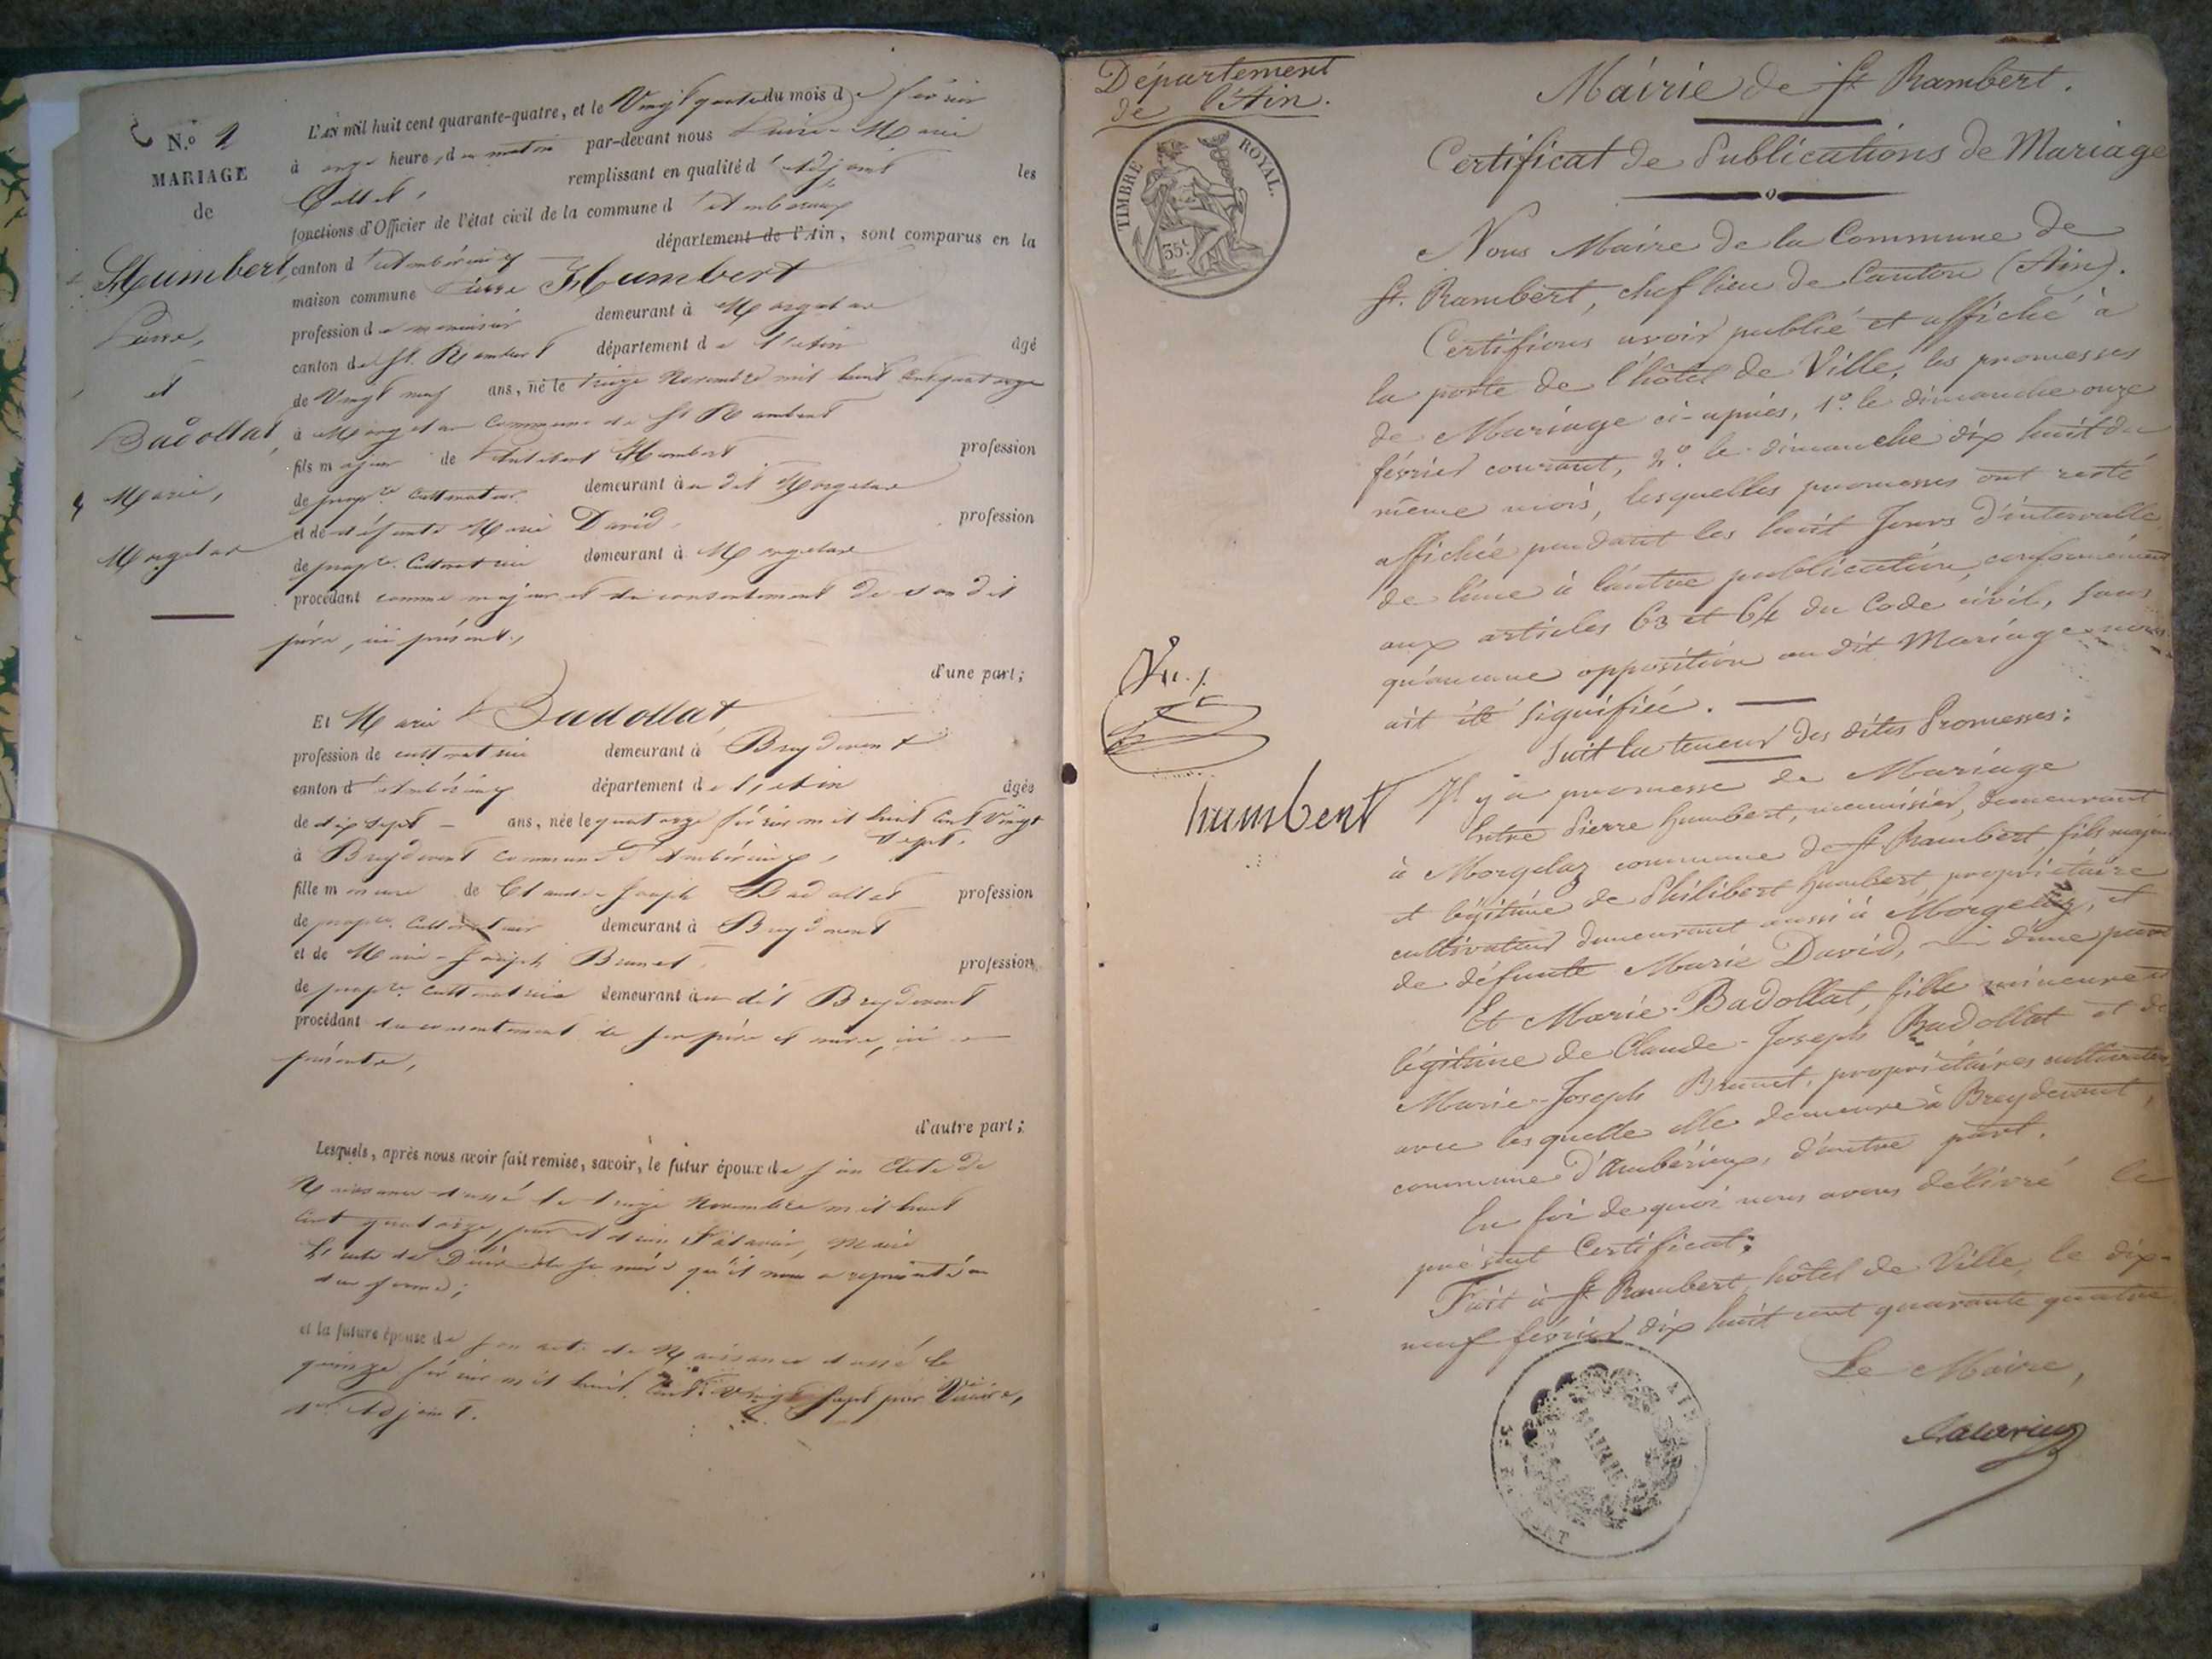 N.º 1
MARIAGE
de
Humbert
Pierre,
et
Badollat,
Marie,
Morgelas
L'AN mil huit cent quarante-quatre, et le Vingt quatre du mois de février
à onze heures du matin par-devant nous Pierre-Marie
remplissant en qualité d'Adjoint les
fonctions d'Officier de l'état civil de la commune d'Ambérieux
canton d'Ambérieux département de l'Ain, sont comparus en la
maison commune Pierre Humbert
profession de menuisier demeurant à Morgelas
canton de St. Rambert département de l'Ain âgé
de Vingt neuf ans, né le treize Novembre mil huit cent quatorze
à Morgelas Commune de St Rambert
fils majeur de Philibert Humbert profession
de propre. Cultivateur demeurant au dit Morgelas
et de défunte Marie David, profession
de propre. Cultivatrice demeurant à Morgelas
procédant comme majeur et du consentement de son dit
père, ici présent,
d'une part;
Et Marie Badollat
profession de cultivatrice demeurant à Breydevent
canton d'Ambérieux département de l'Ain âgée
de dix sept ans, née le quatorze février mil huit cent Vingt
sept,
à Breydevent commune d'Ambérieux,
fille mineure de Claude-Joseph Badollat profession
de propre. Cultivateur demeurant à Breydevent
et de Marie-Joseph Brunet profession
de propre. cultivatrice demeurant au dit Breydevent
procédant du consentement de ses père et mère, ici
présents,
d'autre part;
Lesquels, après nous avoir fait remise, savoir, le futur époux de son Acte de
Naissance dressé le treize Novembre mil huit
cent quatorze, par Maire
L'acte de Décès de sa mère qu'il nous a représenté en
due forme;
et la future épouse de son acte de Naissance dressé le
quinze février mil huit cent vingt sept par
1er Adjoint.
Département
de l'Ain.
TIMBRE ROYAL.
35c
Vu.
humbert
Mairie de St Rambert.
Certificat de Publications de Mariage
Nous Maire de la Commune de
St. Rambert, chef lieu de Canton (Ain).
Certifions avoir publié et affiché à
la porte de l'hôtel de Ville, les promesses
de Mariage ci-après, 1º. le dimanche onze
février courant, 2º. le dimanche dix huit du
même mois, lesquelles promesses ont resté
affichée pendant les huit Jours d'intervalle
de l'une à l'autre publication, conformément
aux articles 63 et 64 du Code civil, sans
qu'aucune opposition au dit Mariage nous
ait été signifiée.
Suit la teneur des dites Promesses:
Il y a promesse de Mariage
Entre Pierre humbert, menuisier, demeurant
à Morgelaz commune de St. Rambert, fils majeur
et légitime de Philibert humbert, propriétaire
cultivateur demeurant aussi à Morgelaz, et
de défunte Marie David, d'une part
Et Marie Badollat, fille mineure et
légitime de Claude-Joseph Badollat et de
Marie-Joseph Brunet, propriétaires cultivateurs
avec lesquelle elle demeure à Breydevent,
commune d'Ambérieux, d'autre part.
En foi de quoi nous avons délivré le
présent Certificat;
Fait à St. Rambert, hôtel de Ville, le dix-
neuf février dix huit cent quarante quatre
Le Maire,
MAIRIE
AIN